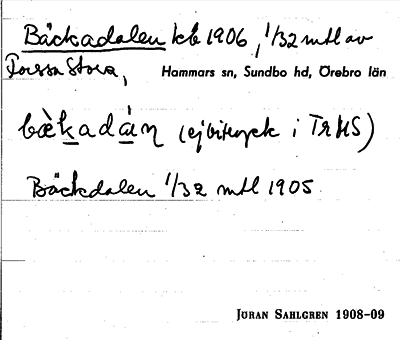 Bäckadalen kb 1906, 1/32 mtl av
Torssa Stora, Hammars sn, Sundbo hd, Örebro län
bäkadán (ej bitryck i TrHS)
Bäckdalen 1/32 mtl 1905
Jöran Sahlgren 1908-09